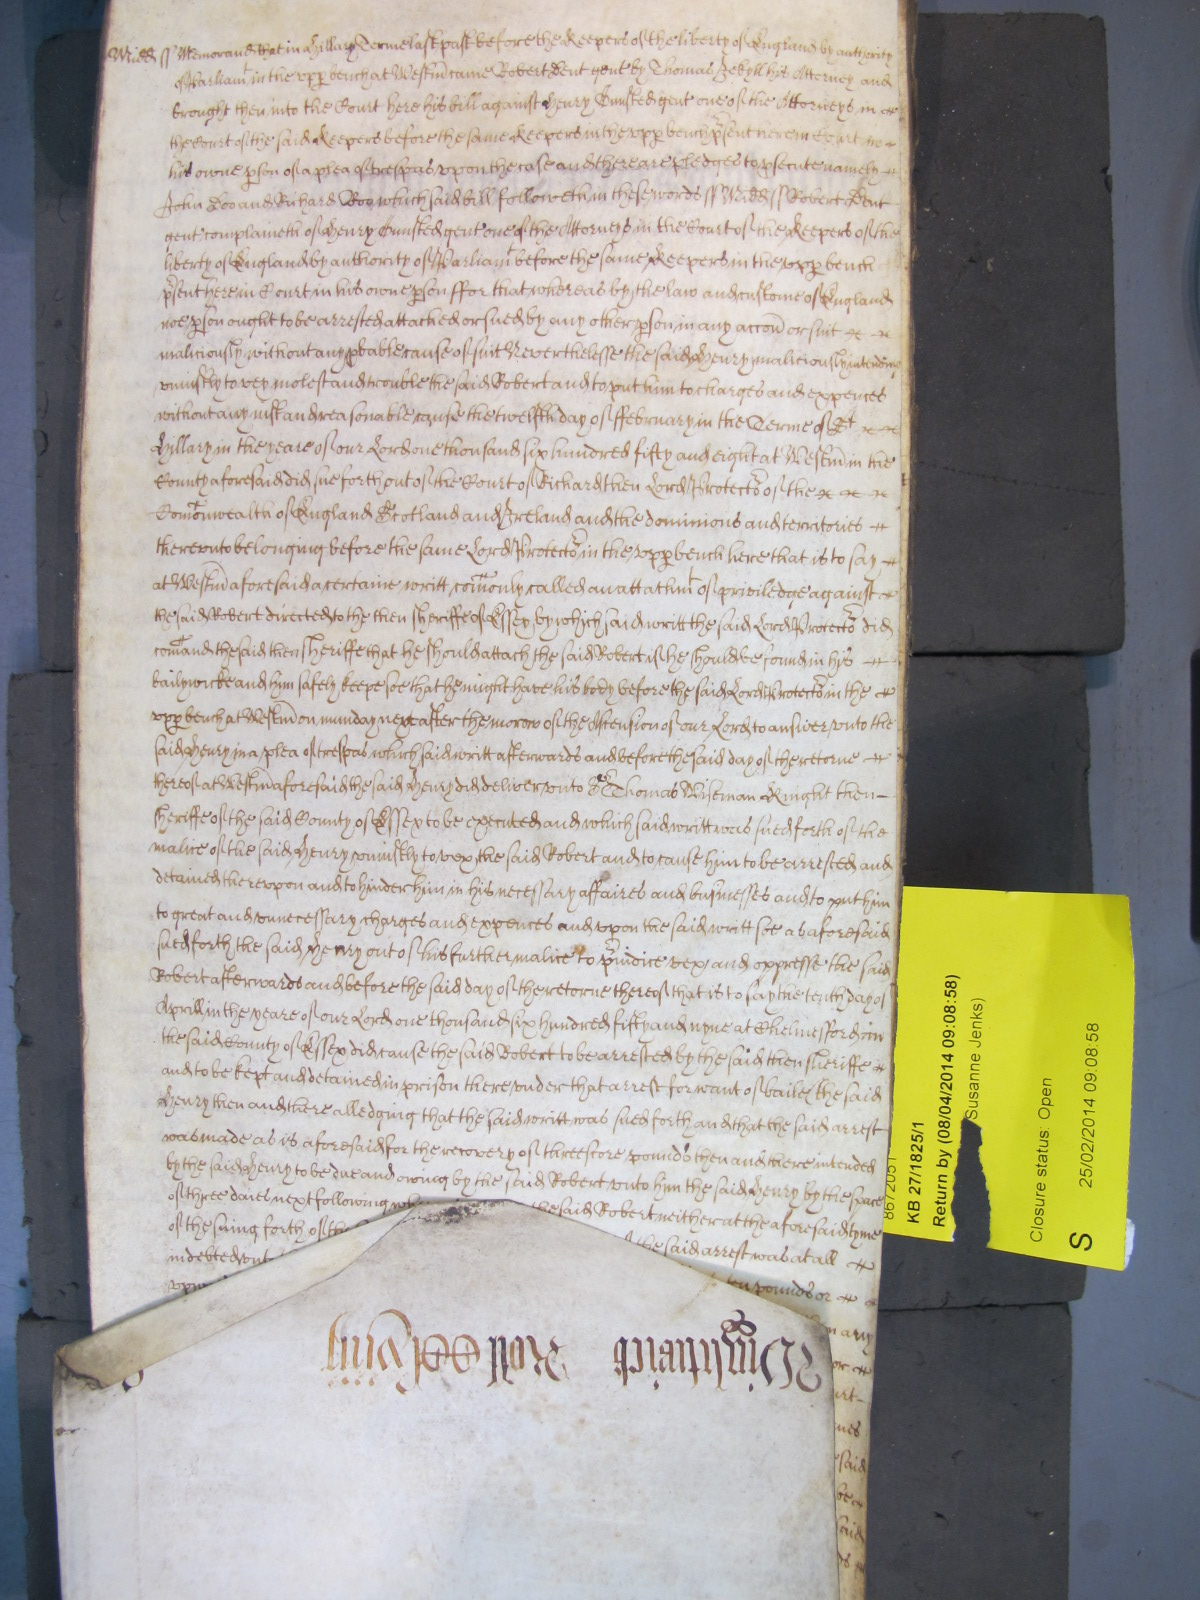 Midd ss Memorand that in Hillary Terme last past before the Keepers of the liberty of England by authority
of Parliamt in the vpp bench at Westm came Robert Dent gent by Thomas Jekyll his Attorney and
brought then into the Court here his bill against Henry gent one of the Attorneys in
the Court of the said Keepers before the same Keepers in the vpp bench psent here in Court in
his owne pson of a plea of trespas vpon the case and there are pledges to psecute namely
John Doo and Richard Roo which said bill followeth in these words ss Midd ss Robert Dent
gent complaineth of Henry gent one of the Attorneys in the Court of the Keepers of the
liberty of England by authority of Parliamt before the same Keepers in the vpp bench
psent here in Court in his owne pson ffor that whereas by the law and custome of England
noe pson ought to be arrested attached or sued by any other pson in any accon or suit
maliciously without any pbable cause of suit Neverthelesse the said Henry maliciously intending
vniustly to vex molest and trouble the said Robert and to put him to charges and expences
without any iust and reasonable cause the twelfth day of ffebruary in the Terme of St
Hillary in the yeare of our Lord one thousand six hundred fifty and eight at Westm in the
County aforesaid did sue forth out of the Court of Richard then Lord Protector of the
Comonwealth of England Scotland and Ireland and the dominions and territories
therevnto belonging before the same Lord Protector in the vpp bench here that is to say
at Westm aforesaid a certaine writt comonly called an attachmt of priviledge against
the said Robert directed to the then Sheriffe of Essex by which said writt the said Lord Protector did
comand the said then Sheriffe that he should attach the said Robert if he should be found in his
bailywicke and him safely keepe soe that he might have his body before the said Lord Protector in the
vpp bench at Westm on munday next after the morow of the Ascension of our Lord to answer vnto the
said Henry in a plea of trespas which said writt afterwards and before the said day of the retorne
thereof at Westm aforesaid the said Henry did deliver vnto Sr Thomas Wiseman Knight then
Sheriffe of the said County of Essex to be executed and which said writt was sued forth of the
malice of the said Henry vniustly to vex the said Robert and to cause him to be arrested and
detained therevpon and to hinder him in his necessary affaires and businesses and to put him
to great and vnnecessary charges and expences and vpon the said writt soe as aforesaid
sued forth the said Henry out of his further malice to piudice vex and oppresse the said
Robert afterwards and before the said day of the retorne thereof that is to say the tenth day of
Aprill in the yeare of our Lord one thousand six hundred fifty and nyne at Chelmesford in
the said County of Essex did cause the said Robert to be arrested by the said then Sheriffe
and to be kept and detained in prison there vnder that arrest for want of baile the said
Henry then and there alledging that the said writt was sued forth and that the said arrest
was made as is aforesaid for the recovery of threescore pounds then and there intended
by the said Henry to be due and owing by the said Robert vnto him the said Henry by the space
of three daies next following the said Robert neither at the aforesaid tyme
of the suing forth of the the said arrest was at all
indebted vnt pounds or
vpon
any
said
Roll
KB 27/1825/1
Return by (08/04/2014 09:08:58)
Susanne Jenks)
Closure status: Open
S
25/02/2014 09:08:58